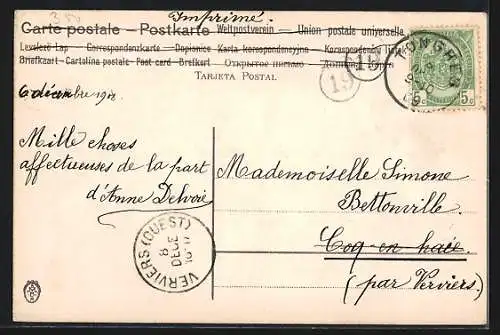 Imprimé.
Carte postale – Postkarte Weltpostverein – Union postale universelle
Levelező Lap – Correspondenzkarte – Dopisnice Karta korespondencyjna – Korespondenční lístek
Briefkaart – Cartolina postale – Post card – Brefkort – Открытое письмо –
Tarjeta Postal
19
TONGRES
5c 5c
6 décembre
Mille choses
affectueuses de la part
d'Anne Delvoie
Mademoiselle Simone
Bettonville.
Coq-en-haie.
(par Verviers)
VERVIERS (OUEST)
8
DECE